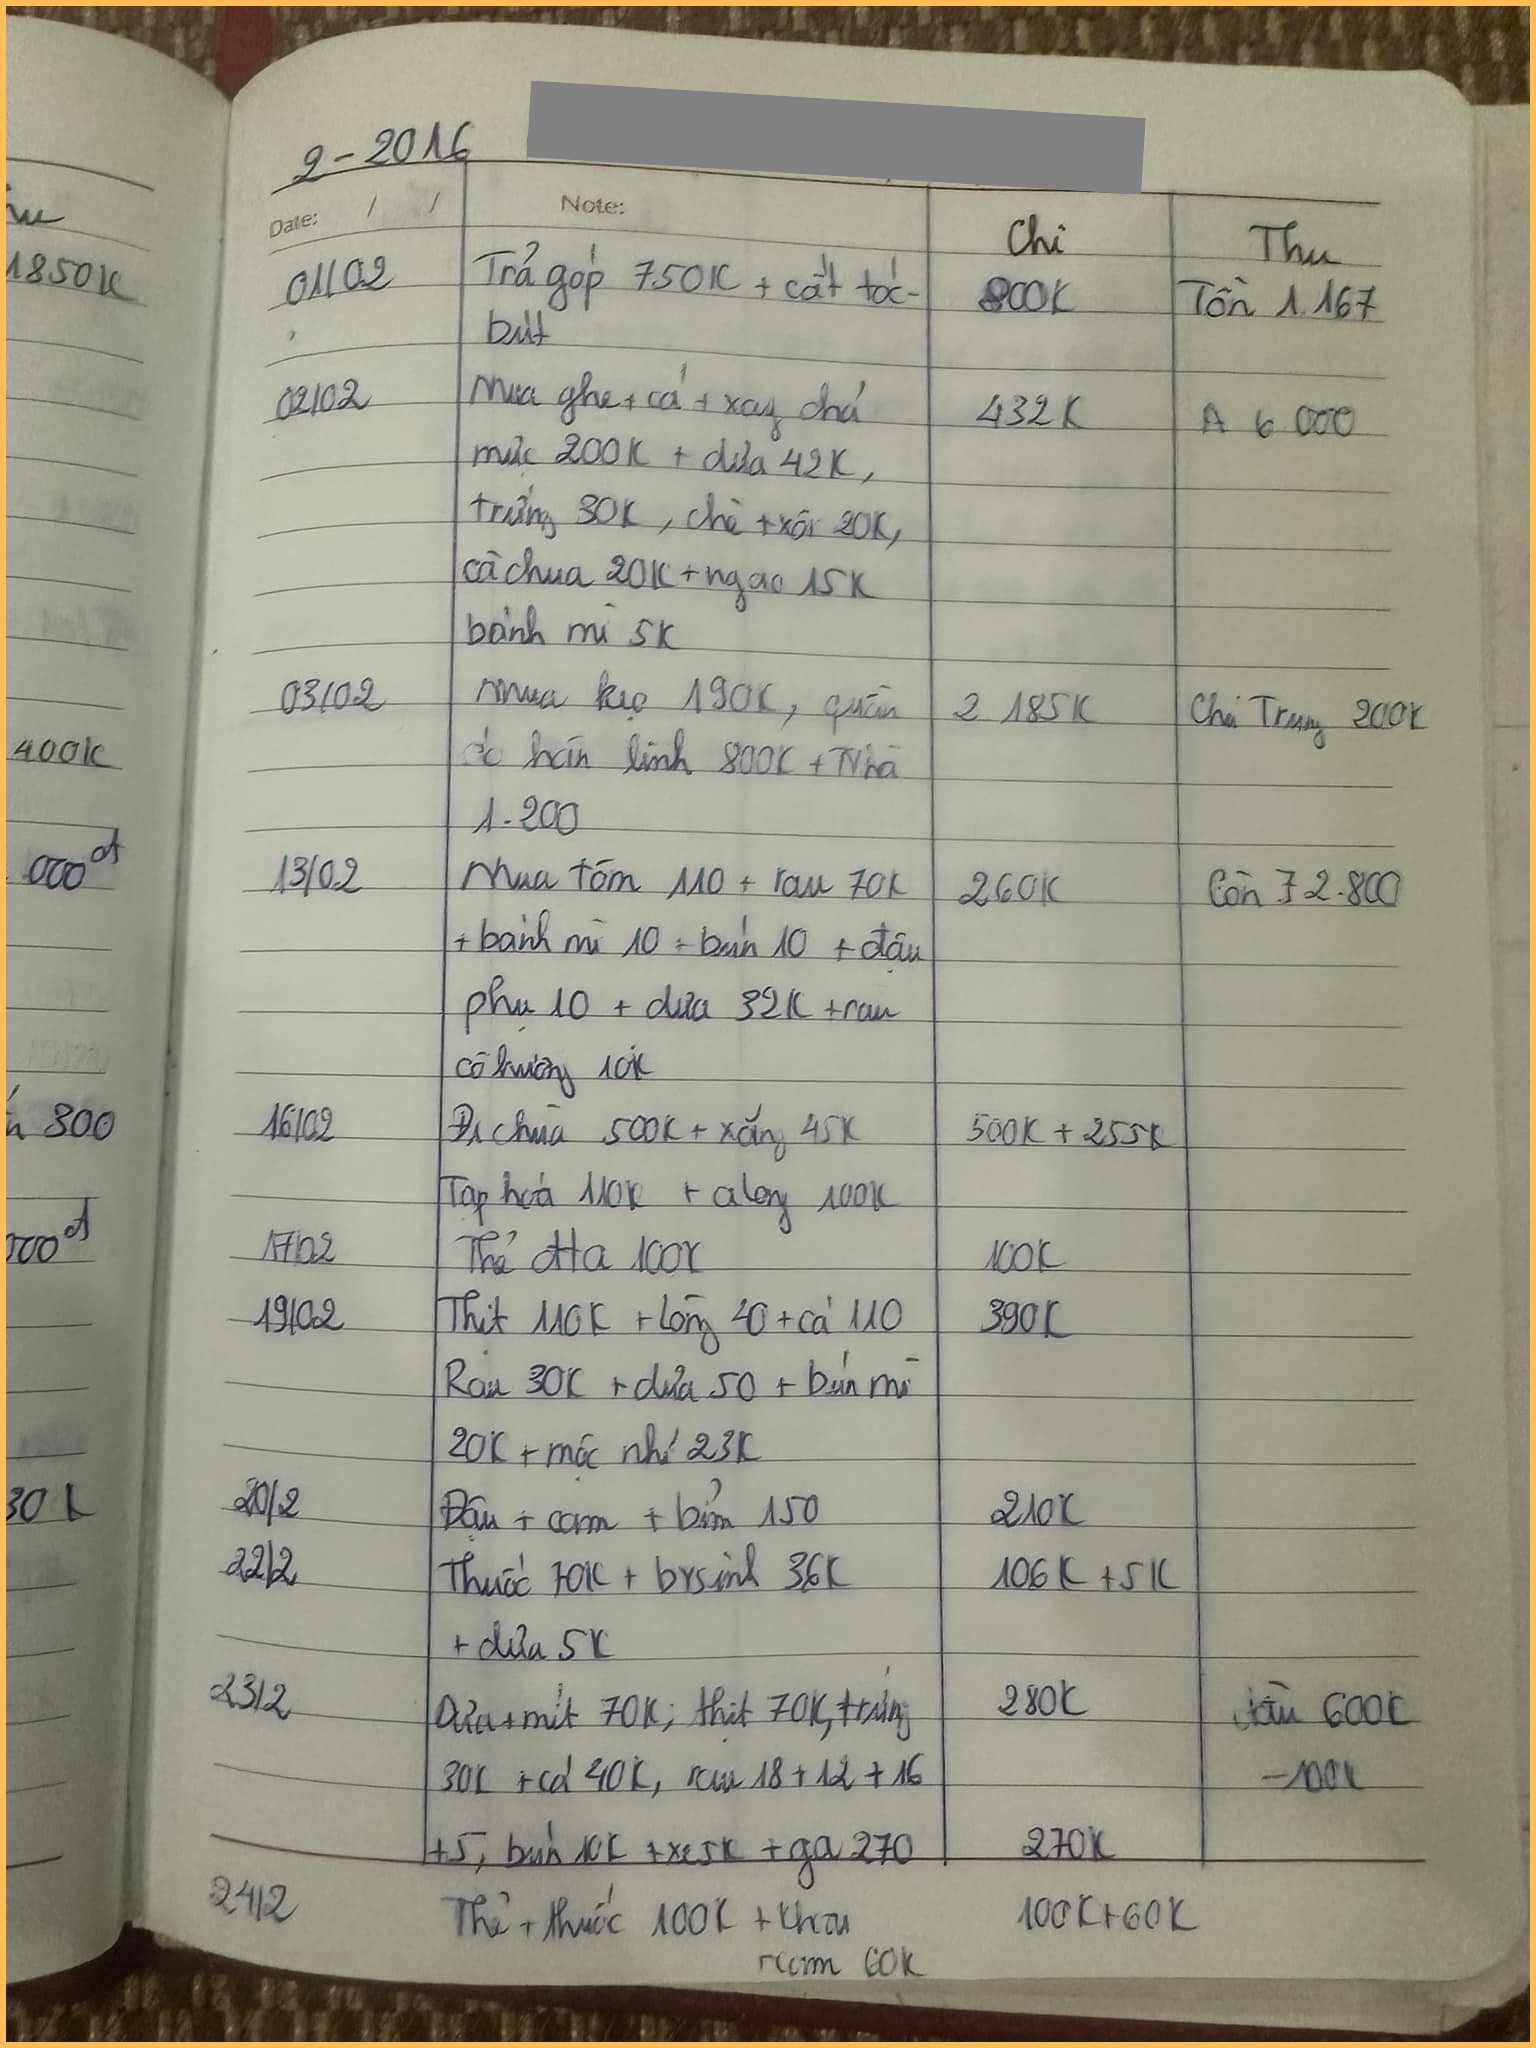 2-2016
Date: / / Note:
Chi Thu
01/02 Trả góp 750K + cắt tóc- 800K Tồn 1.167
bút
02/02 Mua ghẹ + cá + xay chả 432K A 6 000
mực 200K + dứa 42K,
trứng 30K, chè + xôi 20K,
cà chua 20K + ngao 15K
bánh mì 5K
03/02 Mua kẹo 190K, quần 2 185K Chị Trung 200K
áo linh 800K + Nhà
1.200
13/02 Mua tôm 110 + rau 70K 260K Còn 72.800
+ bánh mì 10 + bún 10 + đậu
phụ 10 + dưa 32K + rau
cô hương 10K
16/02 Đi chùa 500K + xăng 45K 500K + 255K
Tạp hoá 110K + along 100K
17/02 Thẻ 100K 100K
19/02 Thịt 110K + lòng 40 + cá 110 390K
Rau 30K + dứa 50 + bún mì
20K + mộc nhĩ 23K
20/2 Đậu + cam + bỉm 150 210K
22/2 Thuốc 70K + 36K 106K + 5K
+ dứa 5K
23/2 Dứa + mít 70K; thịt 70K, trứng 280K 600K
30K + cá 40K, rau 18 + 12 + 16 -100K
+5, bún 10K + xe 5K + ga 270 270K
24/2 Thẻ + thuốc 100K + 100K + 60K
60K
1850K
400K
000đ
300
000đ
30K